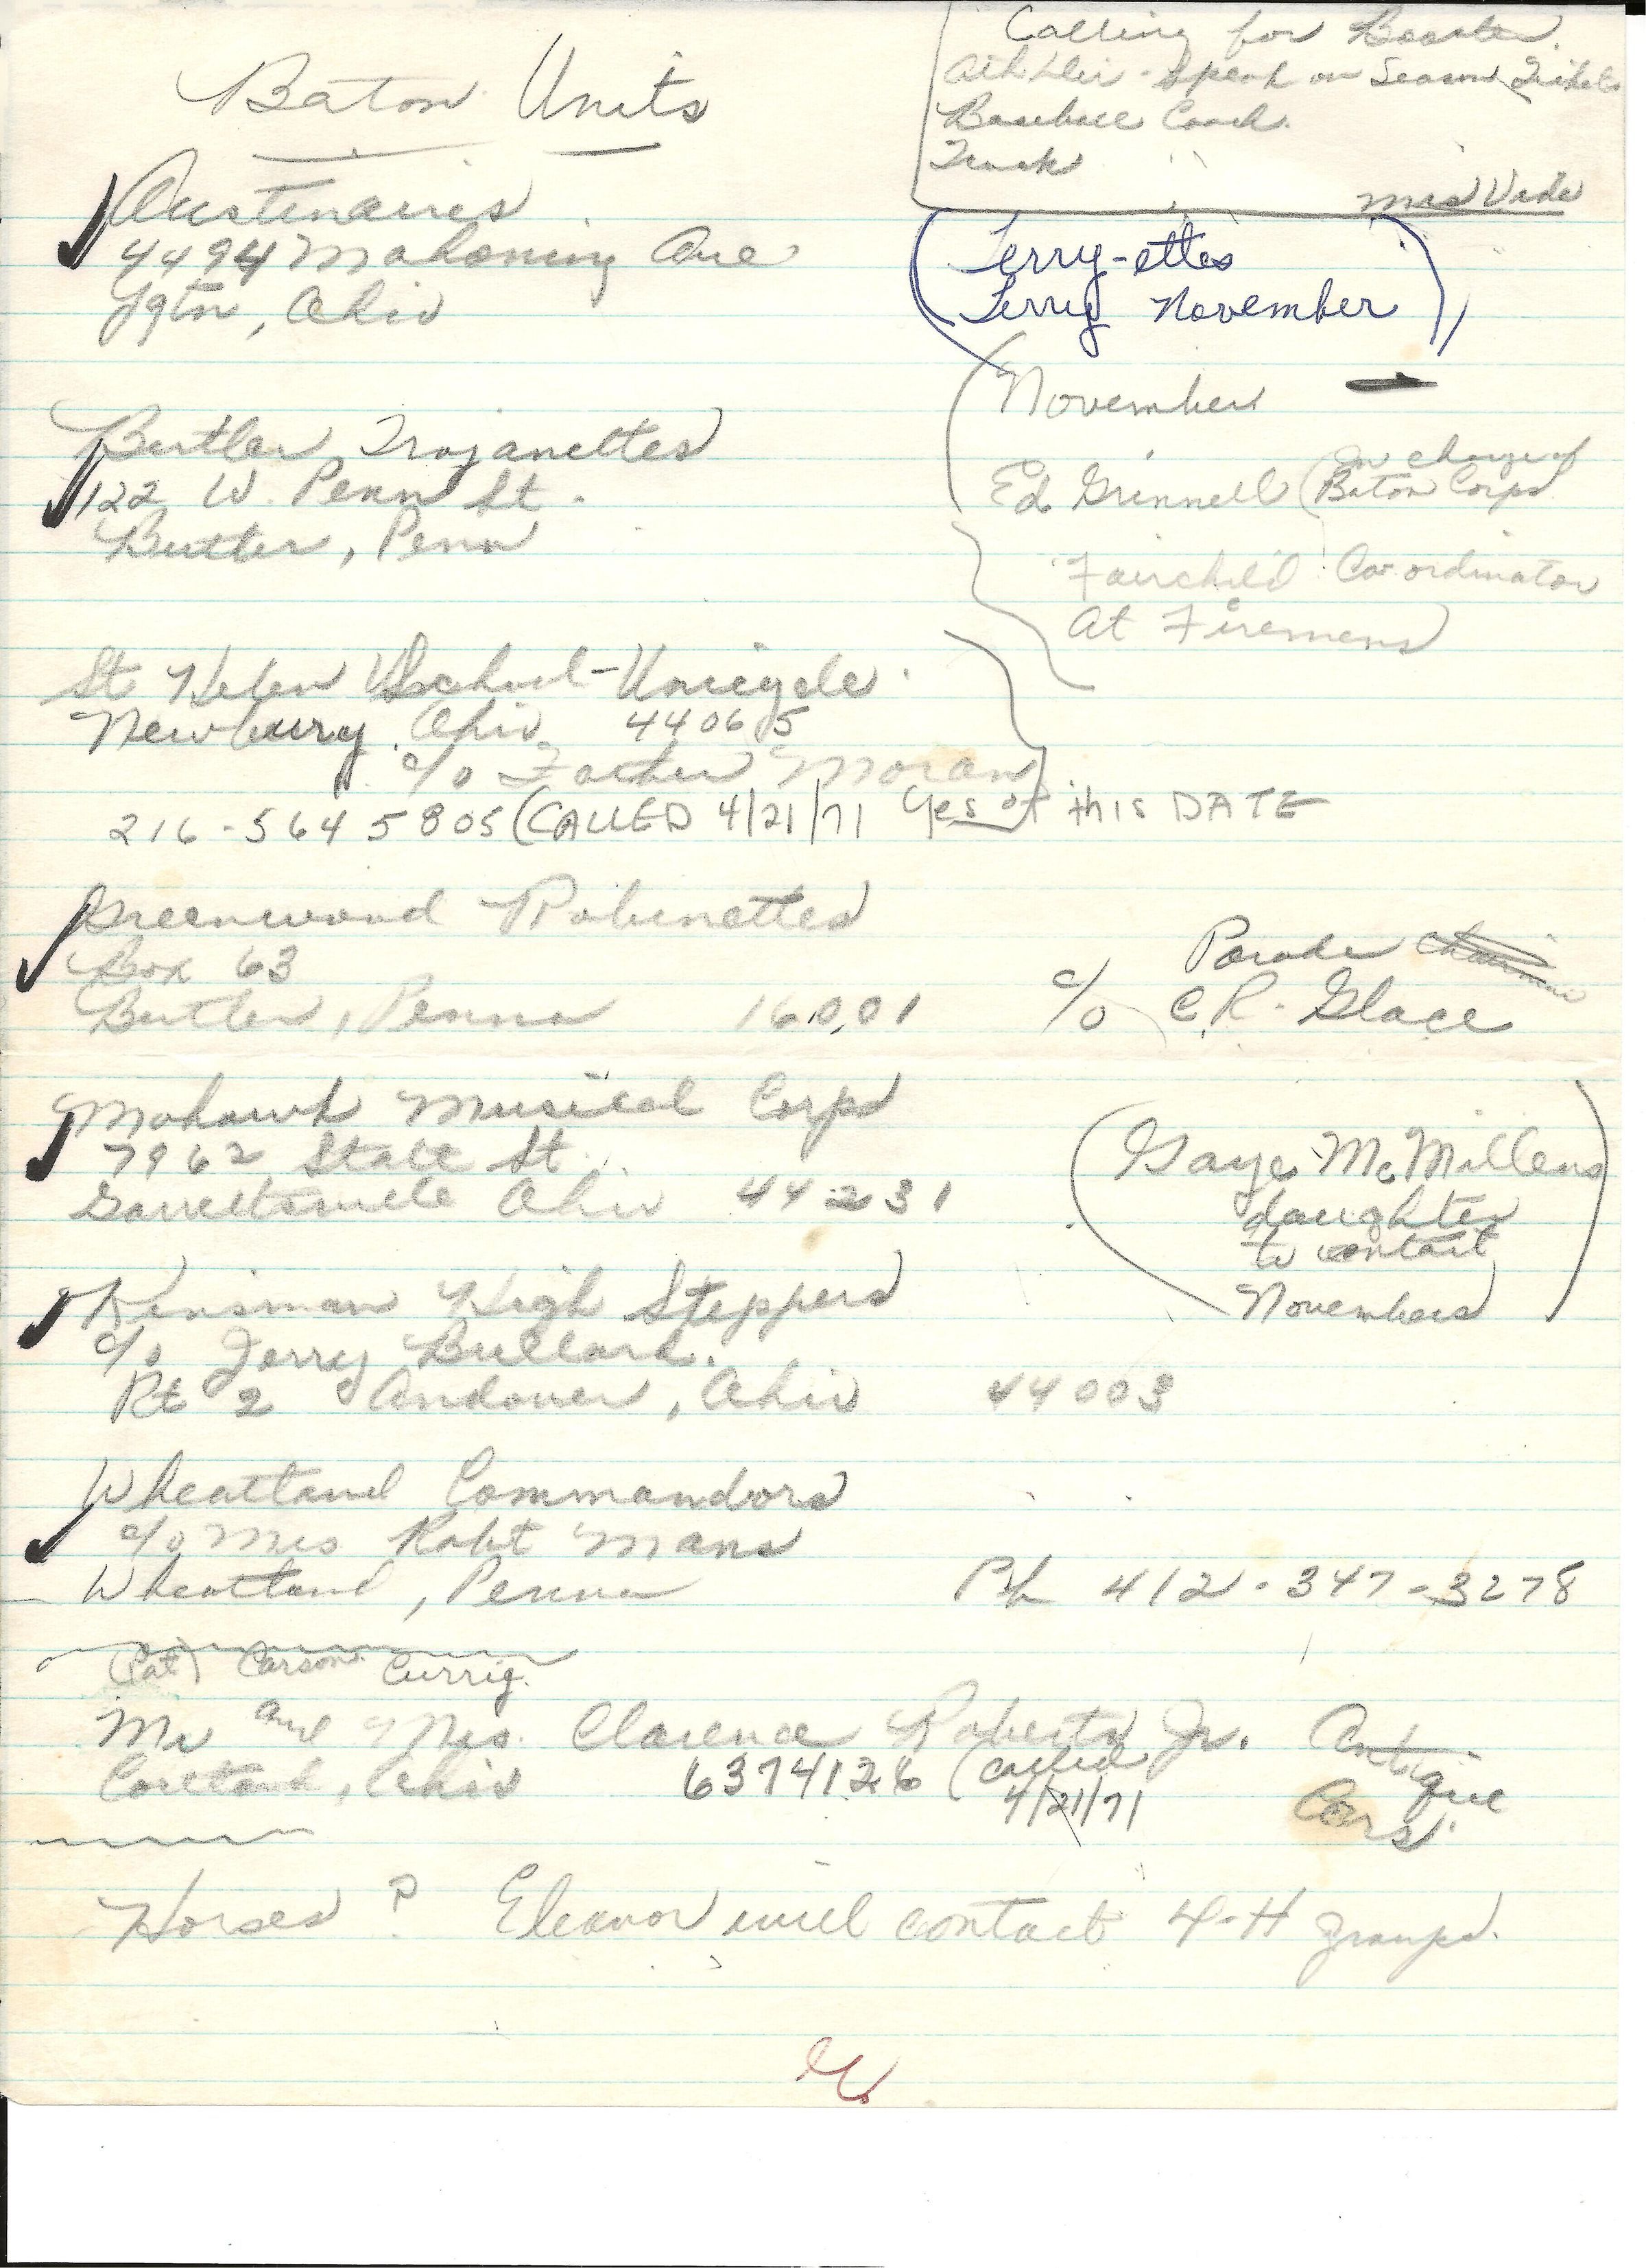 Calling for Booster
Athletic - Speak on Season Tickets
Baseball Coach.
Track
Mrs
Baton Units
Austenaires
4494 Mahoning Ave
Ygtn, Ohio
Terry-ettes
Terry November
November
Ed Grinnell (in charge of
Baton Corps
Fairchild Co-ordinator
at Firemens
Butler Trojanettes
122 W. Penn St.
Butler, Penn
St Helen School - Unicycle
Newbury, Ohio 44065
c/o Father Moran
216-564 5805 (CALLED 4/21/71 Yes of this DATE
Greenwood Robinettes
Box 63
Butler, Penna 16001
Parade
c/o C.R. Glace
Mohawk Musical Corps
7962 State St.
Garrettsville Ohio 44231
(Gaye McMillens
daughter
to contact
Novembers)
Kinsman High Steppers
c/o Jerry Bullard.
Rt 2 Andover, Ohio 44003
Wheatland Commandors
c/o Mrs Robt Mans
Wheatland, Penna Ph 412-347-3278
(Pat) Carson Currig.
Mr and Mrs. Clarence Roberts Jr. Antique
Cars.
Cortland, Ohio 6374126 (called
4/21/71
Horses? Eleanor will contact 4-H groups.